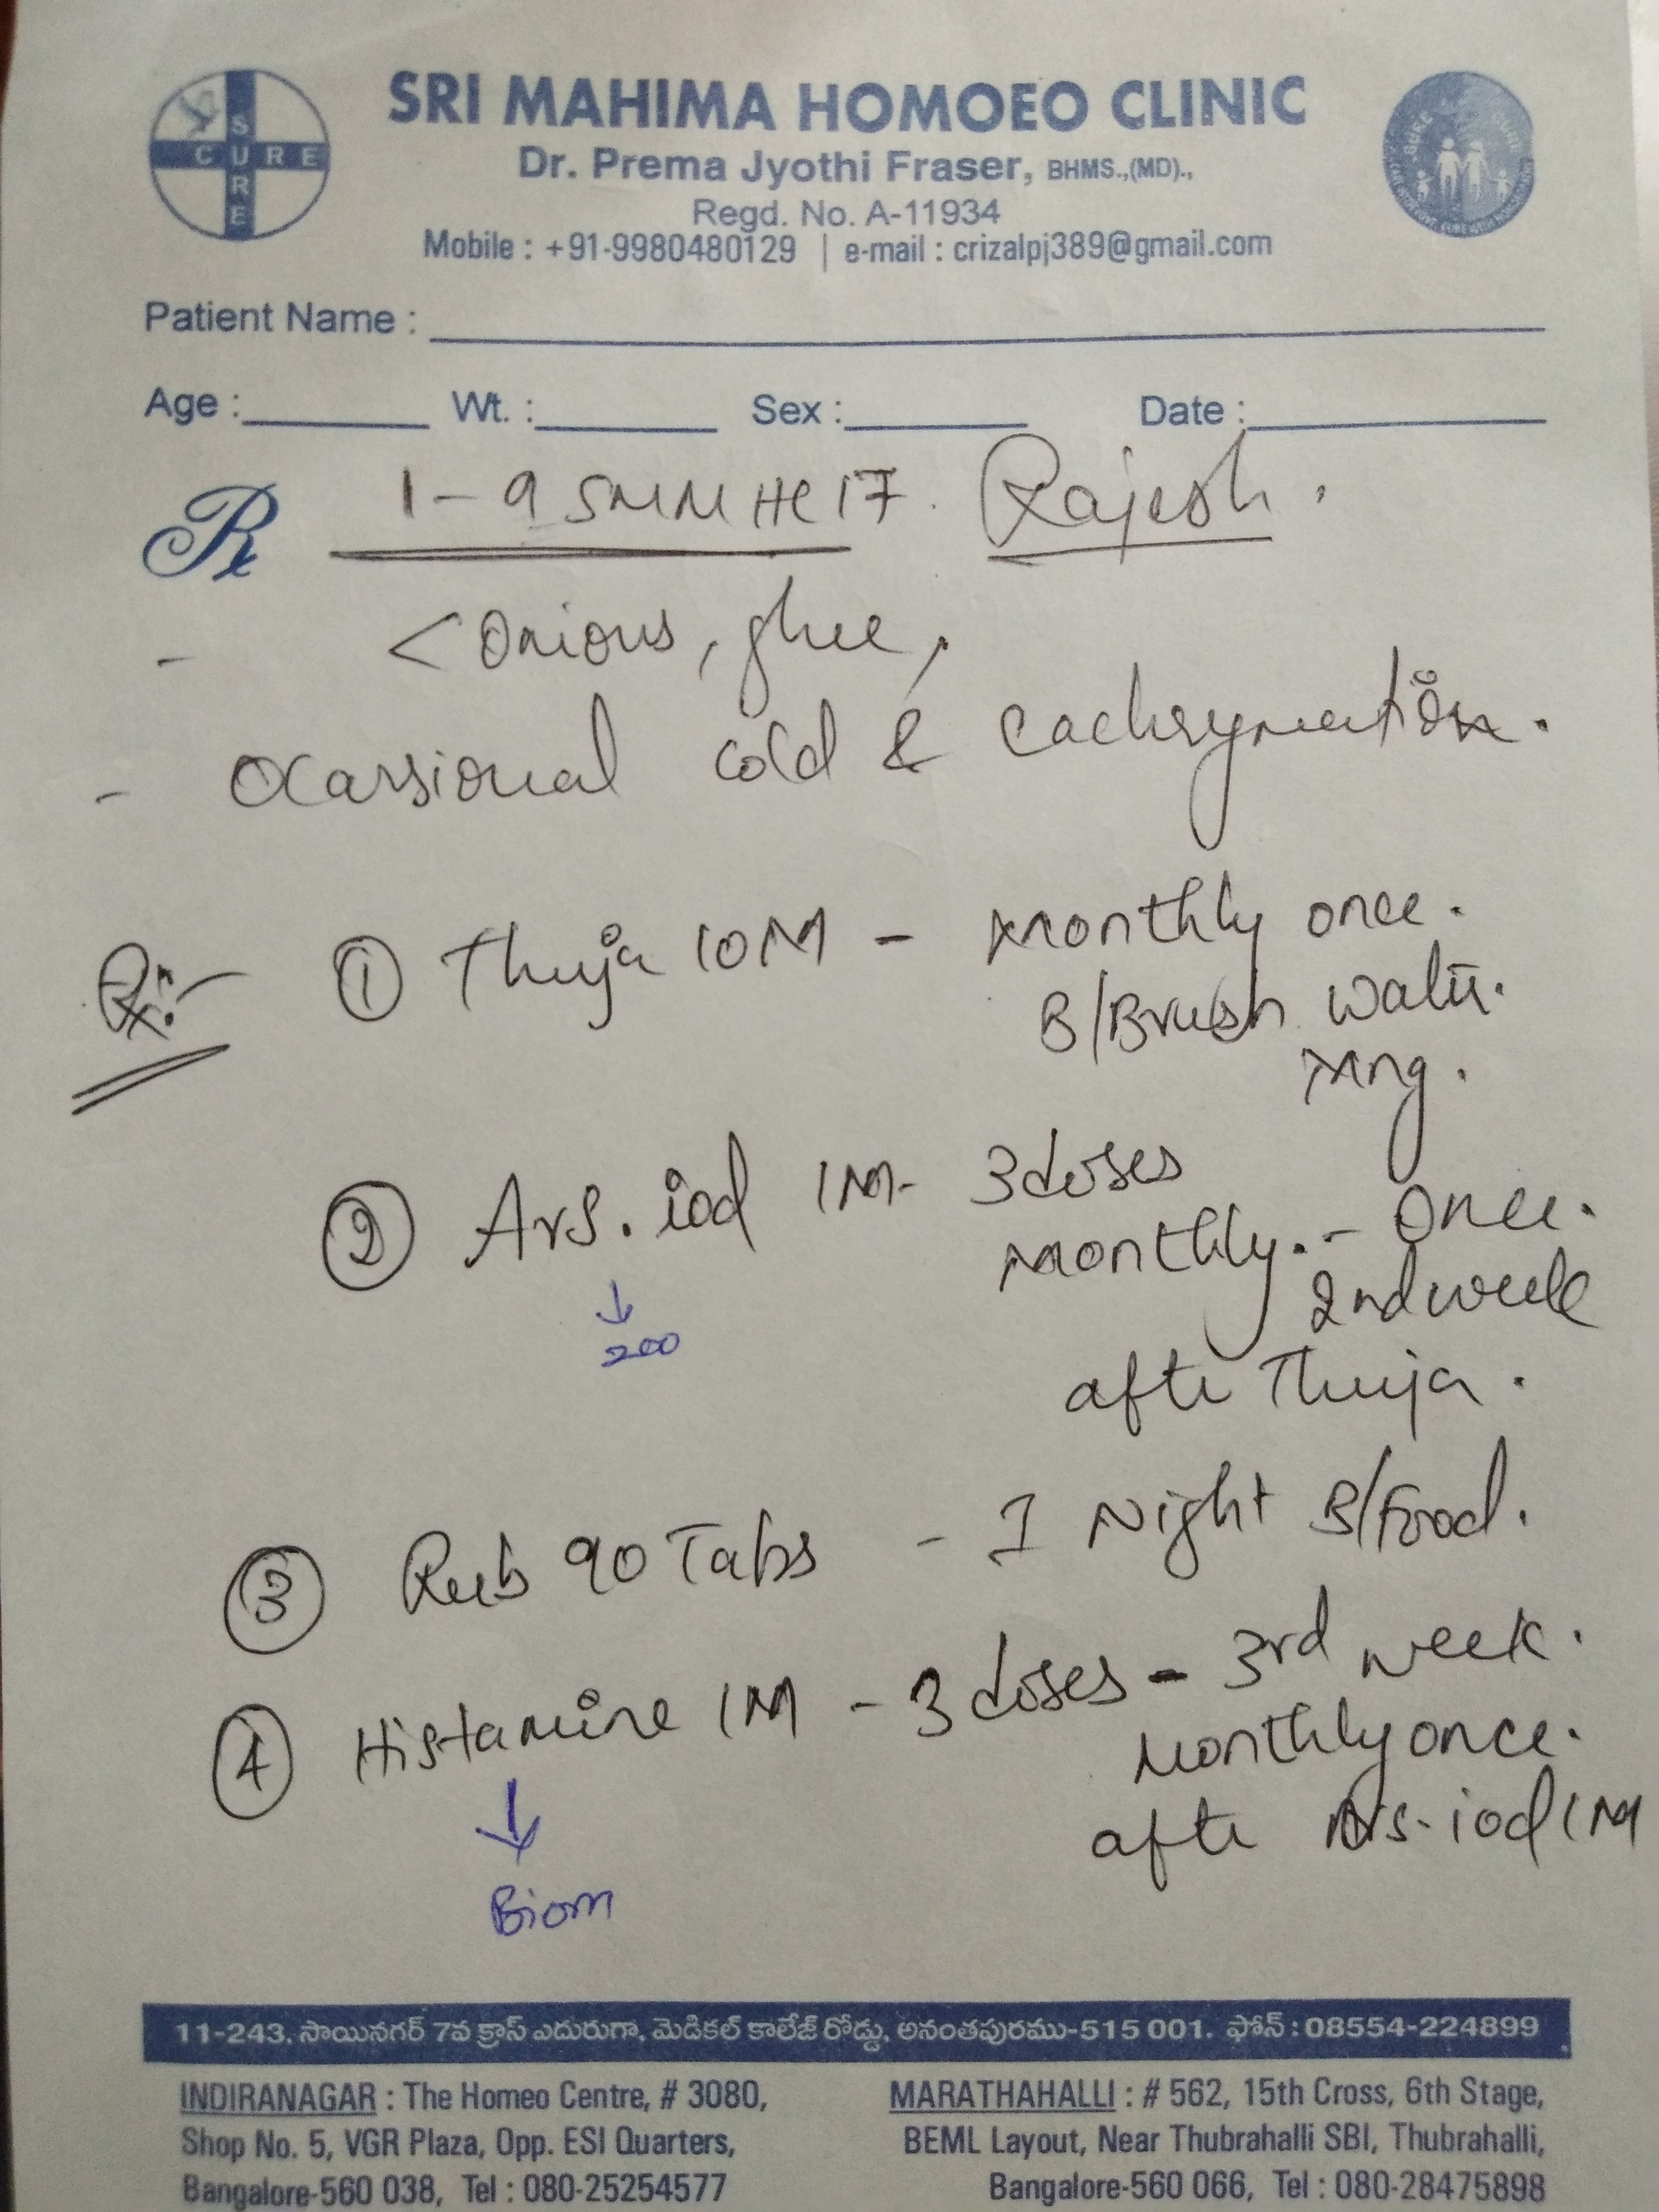 SURE
CURE
SRI MAHIMA HOMOEO CLINIC
Dr. Prema Jyothi Fraser, BHMS.,(MD).,
Regd. No. A-11934
Mobile : +91-9980480129 | e-mail : crizalpj389@gmail.com
Patient Name :
Age : Wt. : Sex : Date :
Rx 1-9 SMMHC17. Rajesh.
- < Onions, ghee,
- Ocassional cold & Lachrymation.
Rx:- ① Thuja 10M - Monthly once.
B/Brush water.
Mng.
② Ars. iod 1M - 3 doses
Monthly. - Once.
2nd week
↓
200
after Thuja.
③ Rub 90 Tabs - 1 Night B/Food.
④ Histamine 1M - 3 doses - 3rd week.
Monthly once.
after Ars. iod 1M
↓
Biom
11-243, సాయినగర్ 7వ క్రాస్ ఎదురుగా, మెడికల్ కాలేజ్ రోడ్డు, అనంతపురము-515 001. ఫోన్ : 08554-224899
INDIRANAGAR : The Homeo Centre, # 3080,
Shop No. 5, VGR Plaza, Opp. ESI Quarters,
Bangalore-560 038, Tel : 080-25254577
MARATHAHALLI : # 562, 15th Cross, 6th Stage,
BEML Layout, Near Thubrahalli SBI, Thubrahalli,
Bangalore-560 066, Tel : 080-28475898